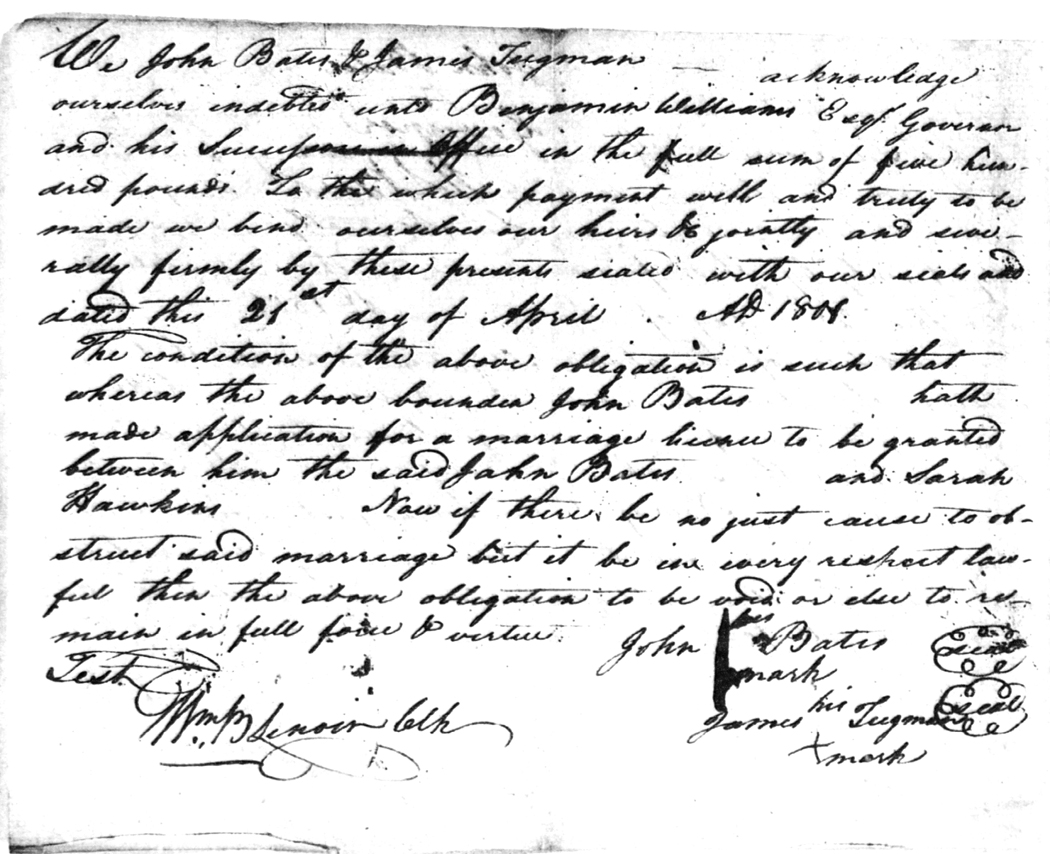 We John Bates & James Tugman — acknowledge
ourselves indebted unto Benjamin Williams Esqr. Governor
and his Successor in Office in the full sum of five hun-
dred pounds. To the which payment well and truly to be
made we bind ourselves our heirs &c jointly and seve-
rally firmly by these presents sealed with our seals and
dated this 21st day of April . AD 1808.
The condition of the above obligation is such that
whereas the above bounden John Bates hath
made application for a marriage licence to be granted
between him the said John Bates and Sarah
Hawkins Now if there be no just cause to ob-
struct said marriage but it be in every respect law-
ful then the above obligation to be void or else to re-
main in full force & vertue.
John his Bates seal
mark
Test
Wm. B Lenoir Clk
James his Tugman seal
X mark